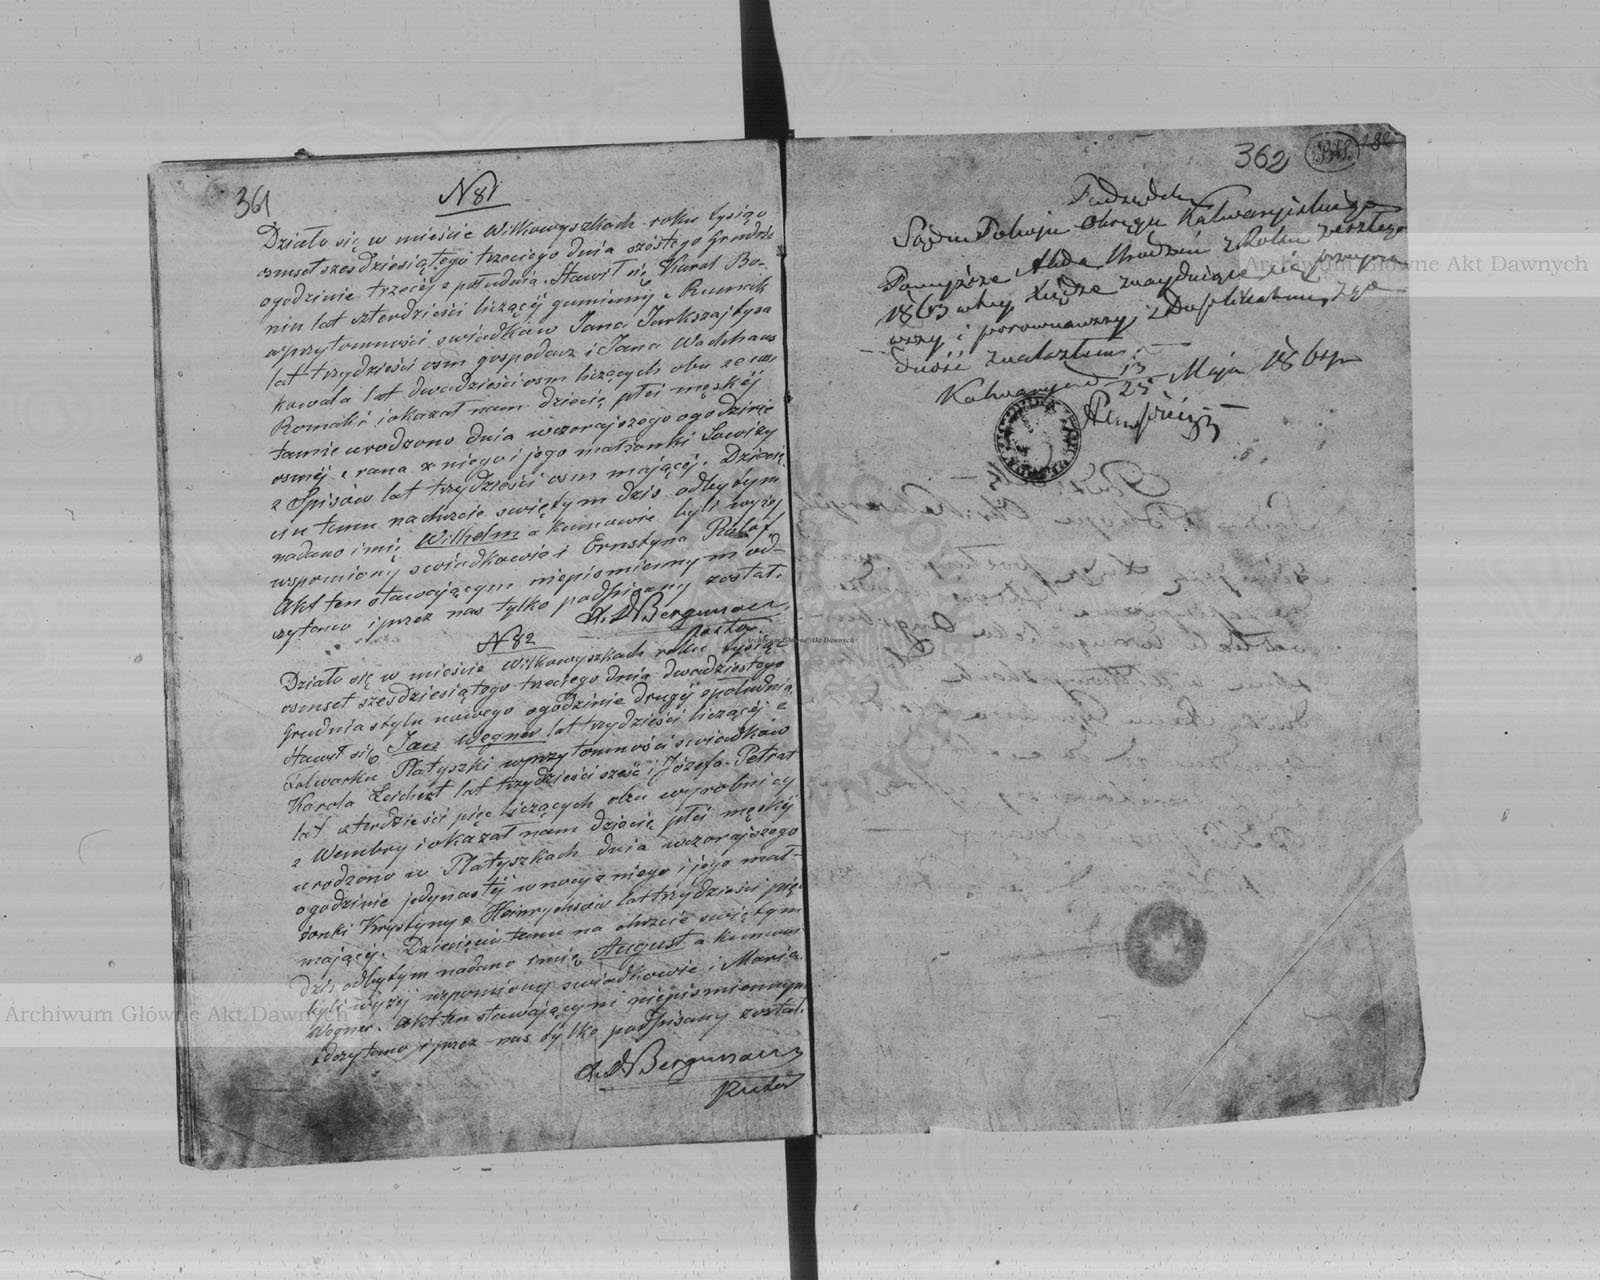 361
N 81
Działo się w mieście Wilkowyszkach roku tysiąc
osmset sześdziesiątego trzeciego dnia szóstego Grudnia
o godzinie trzeciéj z południa. Stawił się Karol Bo-
nin lat czterdzieści liczącéj gumienny z Rumak
w przytomności świadków Jana Jurkszajtysa
lat trzydzieści osm gospodarz i Jana Wachhaus
kowala lat dwadzieścia osm liczących obu z
Romaki i okazał nam dziecię płci męzkiéj
tamże urodzono dnia wczorajszego o godzinie
osméj z rana z niego i jego małżonki Lowizy
z Spisów lat trzydzieści osm mającéj. Dziecię-
ciu temu na chrzcie świętym dziś odbytym
nadano imię Wilhelm a kumowie byli wyżej
wspomniony świadkowie i Ernstyna Rulof
Akt ten stawającym niepismiennym od-
czytano i przez nas tylko podpisany został.
A. D. Bergmann
Pastor
N 82
Działo się w mieście Wilkowyszkach roku tysiąc
osmset sześdziesiątego trzeciego dnia dwudziestego
Grudnia stylu nowego o godzinie drugiéj z południa
Stawił się Jan Wegner lat trzydzieści liczącéj z
Folwarku Płatyszki w przytomności świadków
Karola Leichert lat trzydzieści sześć i Józefa Petrat
lat czterdzieści pięć liczących obu wyrobnicy
z Wembry i okazał nam dziecię płci męzkiéj
urodzono w Płatyszkach dnia wczorajszego
o godzinie jedynastéj w nocy z niego i jego mał-
żonki Krystyny z Heinrychsów lat trzydzieści pię
mającéj. Dziecięciu temu na chrzcie świętym
dziś odbytym nadano imię August a kumowie
byli wyżéj wspomnionej świadkowie i Maria
Wegner. Akt ten stawającymi niepismiennym
odczytano i przez nas tylko podpisany został.
A. D. Bergmann
Pastor
362
Podsędek
Sądu Pokoju Okręgu Kalwaryjskiego
Powyższe Akta Urodzeń z Roku zeszłego
1863 w téj Księdze znajdujące się przejrza
wszy i porównawszy z Duplikatem, zgo
dność znalazłem.
Kalwarya d 13/25 Maja 1864 r
Archiwum Główne Akt Dawnych
Archiwum Główne Akt Dawnych
Archiwum Główne Akt Dawnych